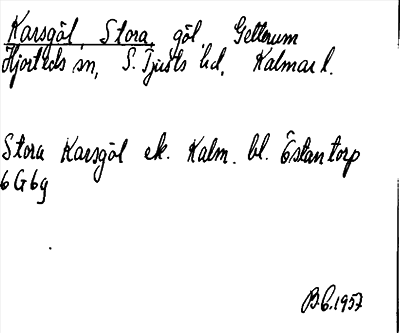 Karsgöl, Stora, göl Getterum
Hjorteds sn, S. Tjusts hd, Kalmar l.
Stora Karsgöl ek. Kalm. bl. Östantorp
6G6g
B.C. 1957